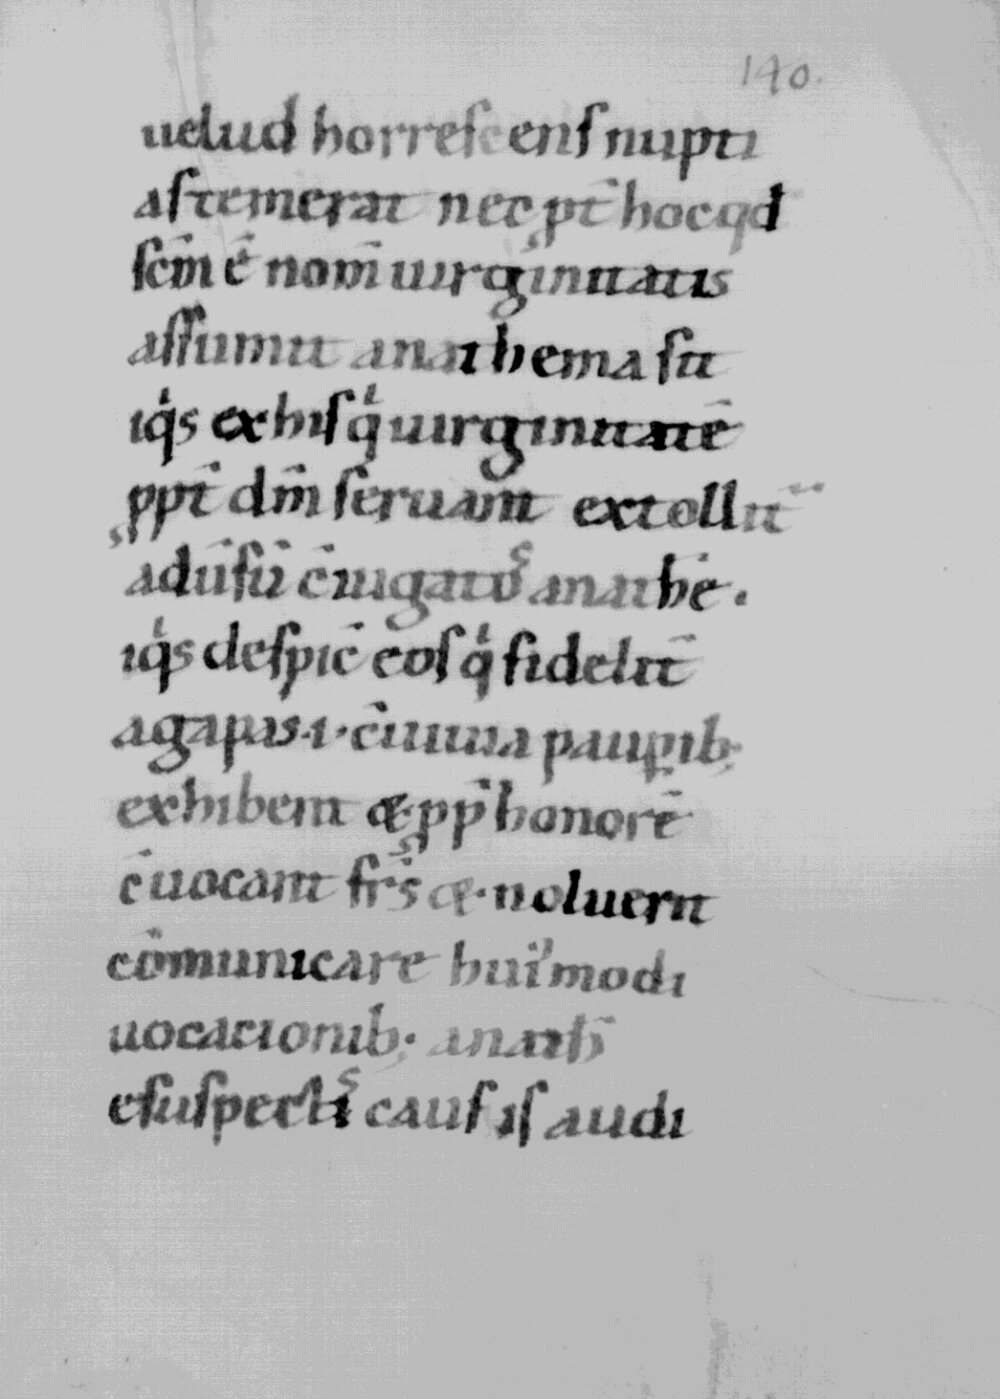 140.
uelud horrescens nupti
as temerat nec pt̄ hoc qd
scm̄ ē nom̄ uirginitatis
assumit anathema sit
iq̇s ex his q̇ uirginitatē
ppt̄ dm̄ seruant extollit̄
adūsū c̄iugatos anathē.
iq̇s despic̄ eos q̇ fidelit̄
agapas .i. c̄uiuia pauꝑib;
exhibent & pp̄ honorē
c̄uocant fr̄s & noluernt
cōmunicare hui'modi
uocacionib; anath̄
e suspectis causis audi